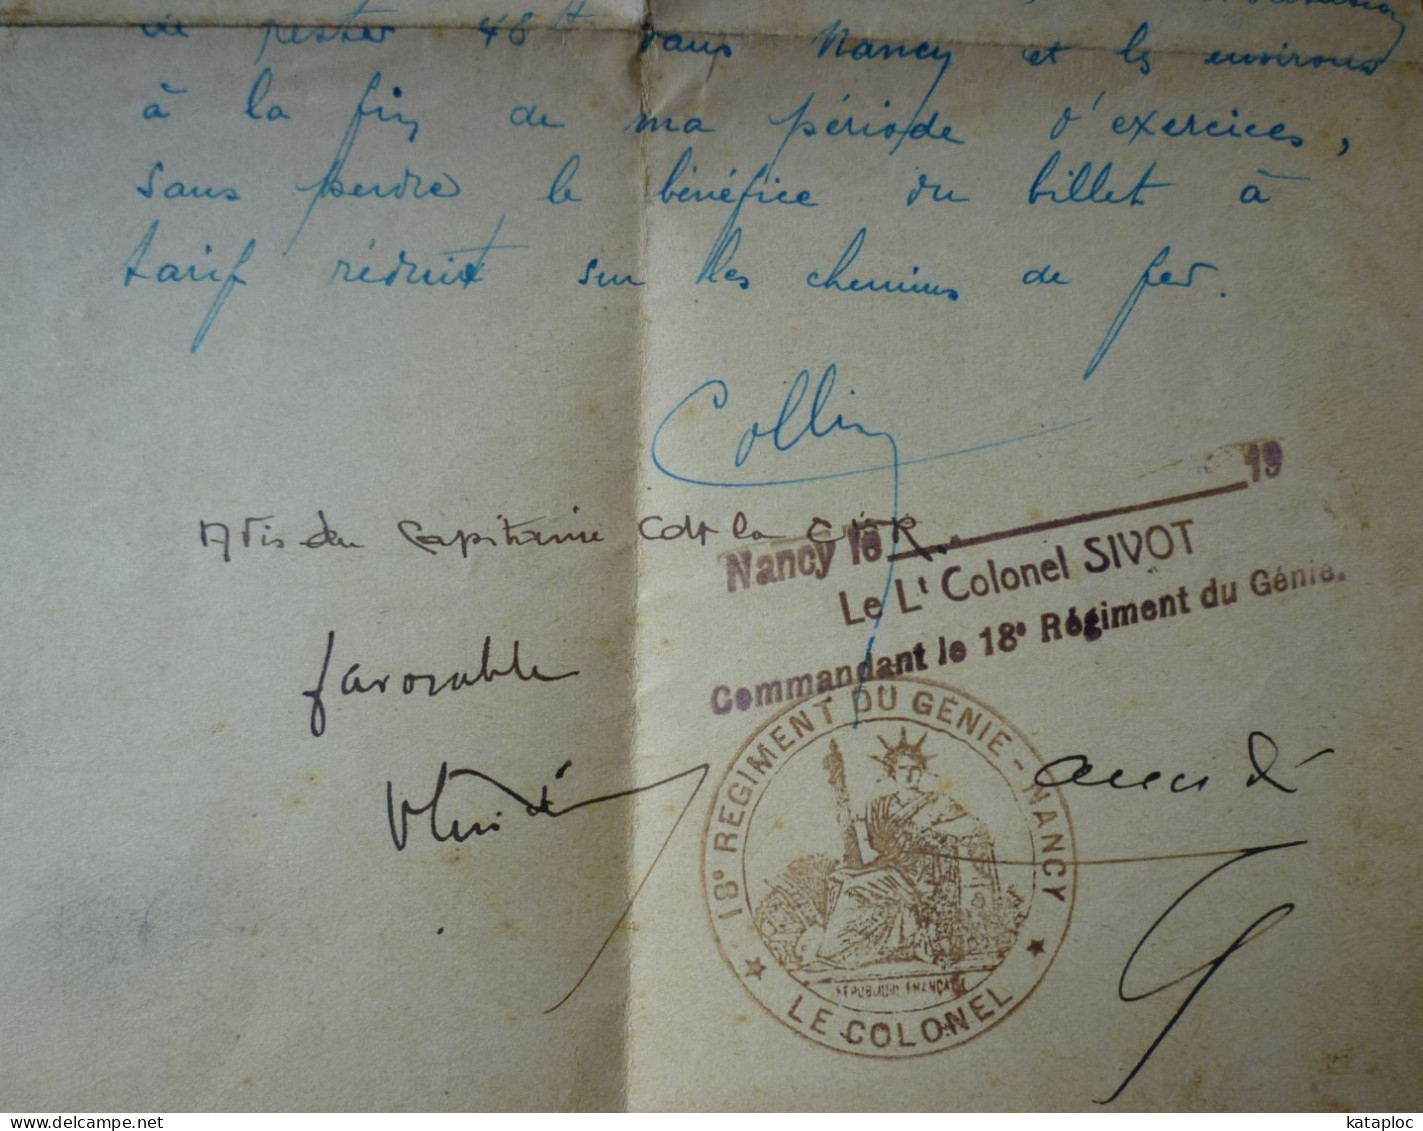 de rester 48h dans Nancy et les environs
à la fin de ma période d'exercices,
sans perdre le bénéfice du billet à
tarif réduit sur les chemins de fer.
Collin
Avis du Capitaine Cdt la
favorable
Nancy le 19
Le Lt Colonel SIVOT
Commandant le 18e Régiment du Génie.
18e RÉGIMENT DU GÉNIE - NANCY
RÉPUBLIQUE FRANÇAISE
★ LE COLONEL ★
accordé
delcampe.net
kataploc